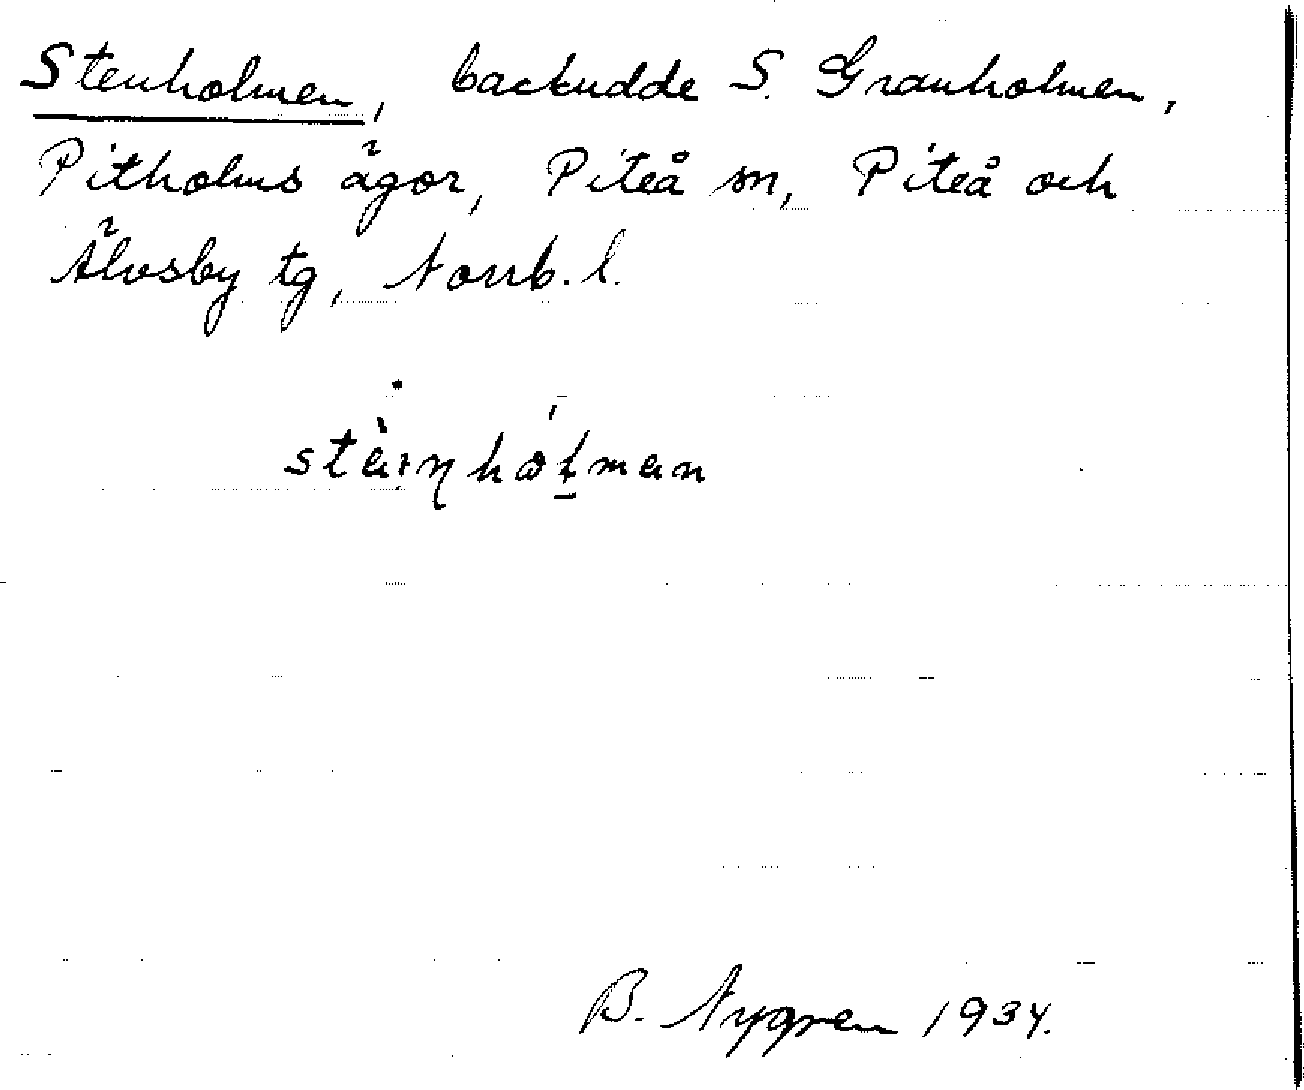 Stenholmen, backudde S. Granholmen,
Pitholms ägor, Piteå sn, Piteå och
Älvsby tg, Norrb. l.
B. Nygren 1934.